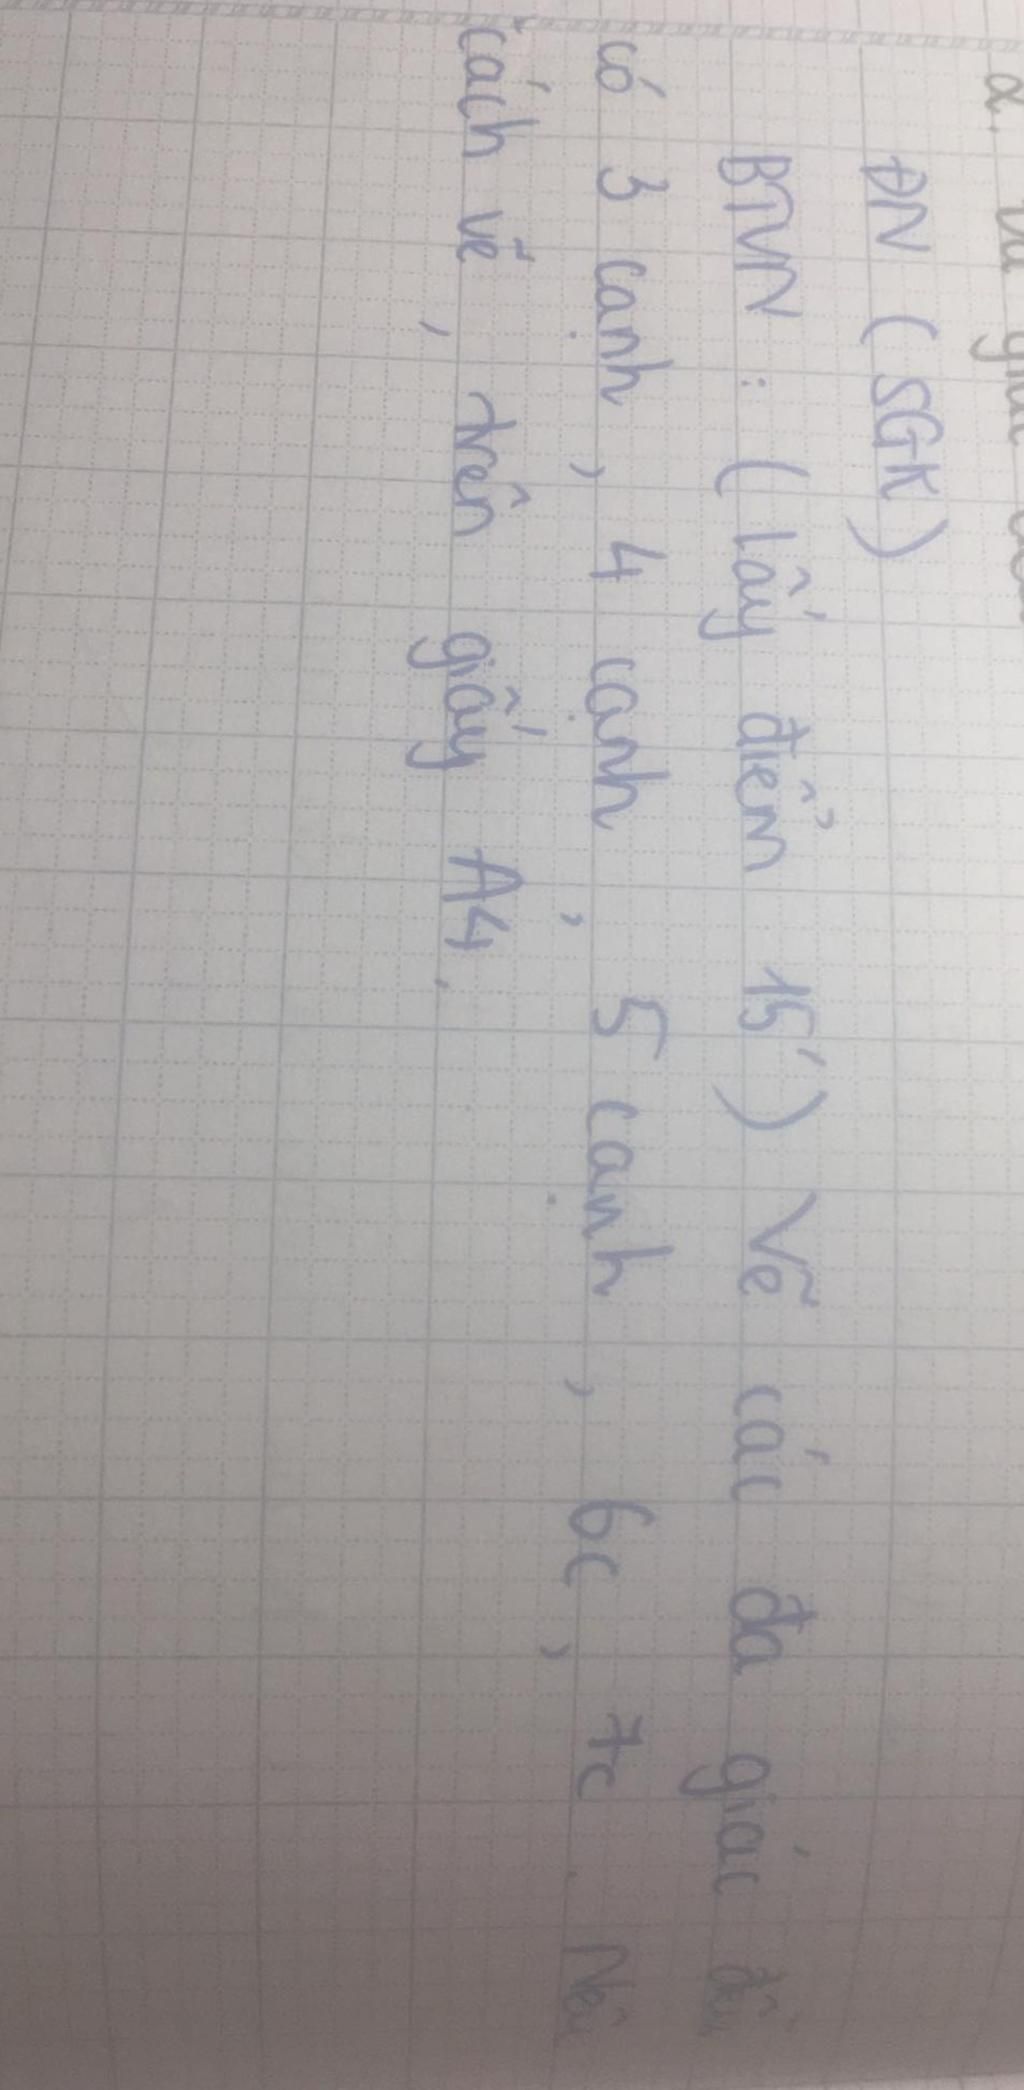 2. Đa giác đều
ĐN (SGK)
BTVN : (lấy điểm 15') Vẽ các đa giác đều
có 3 cạnh, 4 cạnh, 5 cạnh, 6c, 7c. Nêu
cách vẽ, trên giấy A4.